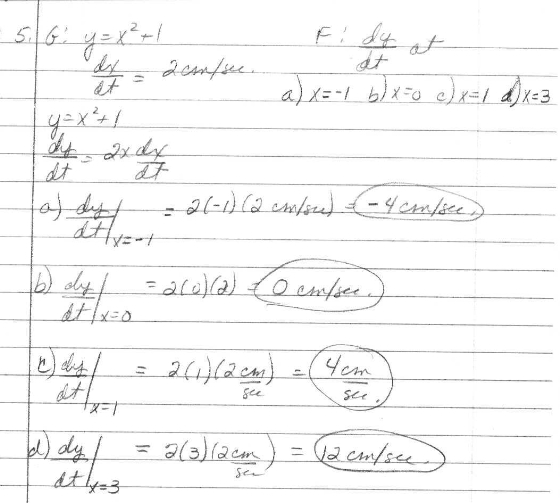 5. G: y=x²+1 F: dy/dt at
dx/dt = 2 cm/sec.
a) x=-1 b) x=0 c) x=1 d) x=3
y=x²+1
dy/dt = 2x dx/dt
a) dy/dt|x=-1 = 2(-1)(2 cm/sec) = -4 cm/sec.
b) dy/dt|x=0 = 2(0)(2) = 0 cm/sec.
c) dy/dt|x=1 = 2(1)(2 cm/sec) = 4 cm/sec.
d) dy/dt|x=3 = 2(3)(2 cm/sec) = 12 cm/sec.